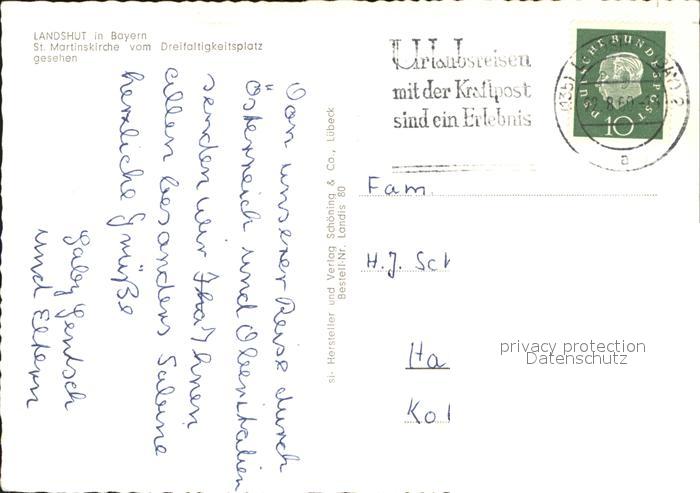 LANDSHUT in Bayern
St. Martinskirche vom Dreifaltigkeitsplatz
gesehen
Urlaubsreisen
mit der Kraftpost
sind ein Erlebnis
DEUTSCHE BUNDESPOST
10
a
Von unserer Reise durch
Österreich und Oberitalien
senden wir Ihnen
allen besonders Sabine
herzliche Grüße
Gaby Gentsch
und Eltern
si- Hersteller und Verlag Schöning & Co., Lübeck
Bestell-Nr. Landis 80
Fam.
H.J. Sch
Ha
Kol
privacy protection
Datenschutz